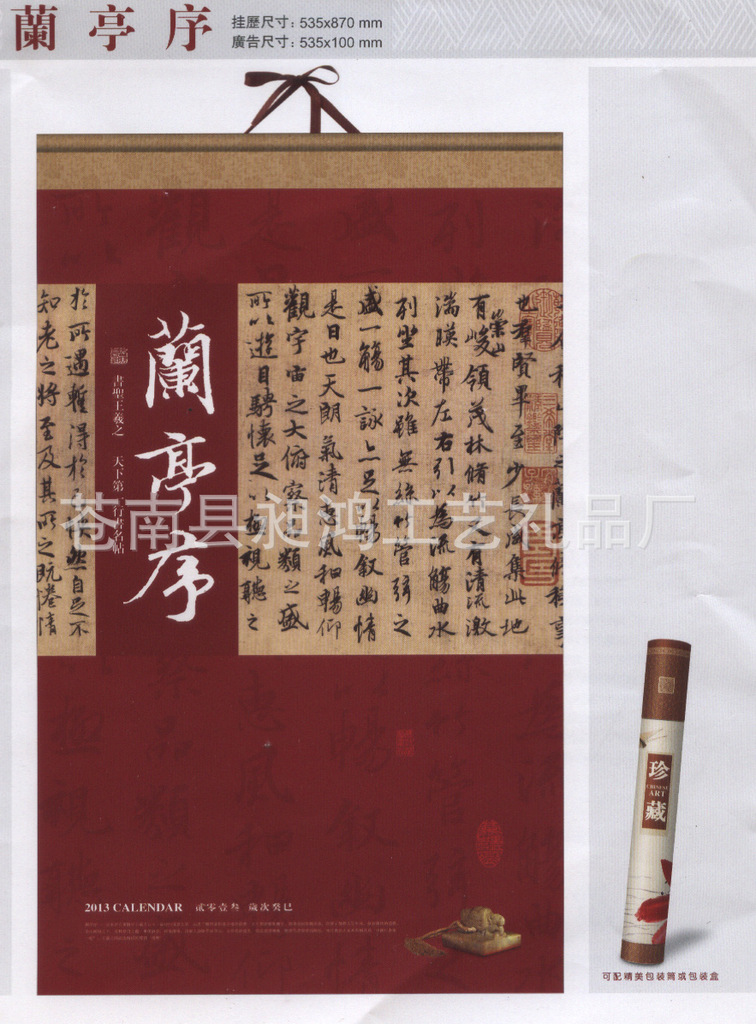 蘭亭序
挂歷尺寸：535x870 mm
廣告尺寸：535x100 mm
也羣賢畢至少長咸集此地
有崇山峻領茂林脩竹又有清流激
湍暎帶左右引以為流觴曲水
列坐其次雖無絲竹管弦之
盛一觴一詠亦足以暢叙幽情
是日也天朗氣清惠風和暢仰
觀宇宙之大俯察品類之盛
所以遊目騁懷足以極視聽之
蘭亭序
書聖王羲之 天下第一行書名帖
於所遇蹔得於己怏然自足不
知老之將至及其所之既惓情
苍南县昶鸿工艺礼品厂
珍
CHINESE
ART
藏
2013 CALENDAR 貳零壹叁 歲次癸巳
可配精美包装筒或包装盒